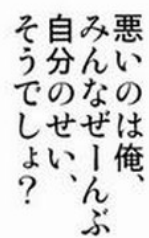 悪いのは俺、
みんなぜーんぶ
自分のせい、
そうでしょ？